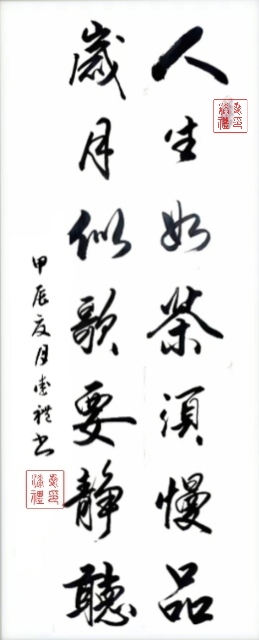 人生如茶須慢品
歲月似歌要静聽
甲辰夏月志禮書